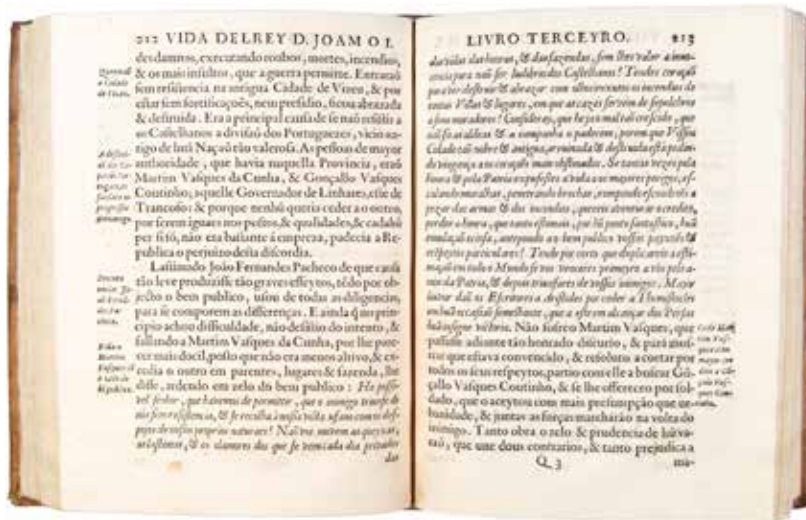 212 VIDA DELREY D. JOAM O I.
des damnos, executando roubos, mortes, incendios,
& os mais insultos, que a guerra permitte. Entraraõ
sem resistencia na antigua Cidade de Viseu, & por
estar sem fortificaçoẽs, nem presidio, ficou abrazada
& destruida. Era a principal causa de se naõ resistir a
os Castelhanos a divisaõ dos Portuguezes, vicio an-
tigo de huã Naçaõ tão valerosa. As pessoas de mayor
authoridade, que havia naquella Provincia, eraõ
Martim Vasques da Cunha, & Gonçallo Vasques
Coutinho; aquelle Governador de Linhares, este de
Trancoso: & porque nenhũ queria ceder ao outro,
por serem iguaes nos postos, & qualidades, & cada hũ
per si só, não era bastante á empreza, padecia a Re-
publica o perjuizo desta discordia.
Lastimado João Fernandes Pacheco de que causa
tão leve produzisse tão graves effeytos, tẽdo por ob-
jecto o bem publico, usou de todas as diligencias,
para se comporem as differenças. E ainda q̃ no prin-
cipio achou difficuldade, não desistio do intento, &
fallando a Martim Vasques da Cunha, por lhe pare-
cer mais docil, posto que não era menos altivo, & ex-
cedia o outro em parentes, lugares & fazenda, lhe
disse, ardendo em zelo do bem publico: He possi-
vel senhor, que havemos de permittir, que o inimigo triunfe de
nós sem resistencia, & se recolha á nossa vista ufano com os des-
pojos de nossos proprios naturaes? Naõ vos movem as queyxas,
as lastimas, & os clamores dos que se vem cada dia privados
das
LIVRO TERCEYRO. 213
das vidas das honras, & das fazendas, sem lhes valer a inno-
cencia para naõ ser ludibrio dos Castelhanos? Tendes coraçaõ
para ver destruir & abrazar com os incendios de
tantas Villas & lugares, em que as cazas servem de sepultura
a seus moradores? Consideray, que he já o mal taõ crescido, que
naõ só as aldeas & a campanha o padecem, porem que Vizeu
Cidade taõ nobre & antiga, arruinada & destruida está pedin-
do vingança aos coraçoẽs mais obstinados. Se tantas vezes pela
honra & pela Patria expusestes a vida a os mayores perigos, es-
calando muralhas, penetrando brechas, rompendo esquadroẽs a
pezar das armas & dos incendios, quereis aventurar o credito,
perder a honra, que tanto estimais, por hũ ponto fantastico, huã
emulaçaõ ociosa, antepondo ao bem publico vossas payxoẽs &
respeytos particulares? Tende por certo que duplicareis a esti-
maçaõ em todo o Mundo se vos vencerdes primeyro a vós pelo a-
mor da Patria, & depois triunfardes de vossos inimigos. Mayor
louvor daõ os Escritores a Aristides por ceder a Themistocles
em huã occasiaõ semelhante, que a este em alcançar dos Persas
hũa insigne victoria. Não sofreo Martim Vasques, que
passasse adiante tão honrado discurso, & para mos-
trar que estava convencido, & resoluto a cortar por
todos os seus respeytos, partio com elle a buscar Gõ-
çallo Vasques Coutinho, & se lhe offereceo por sol-
dado, que o aceytou com mais presumpção que ur-
banidade, & juntas as forças marcharão na volta do
inimigo. Tanto obra o zelo & prudencia de hũ va-
raõ, que une dous contrarios, & tanto prejudica a
Q 3 ma-